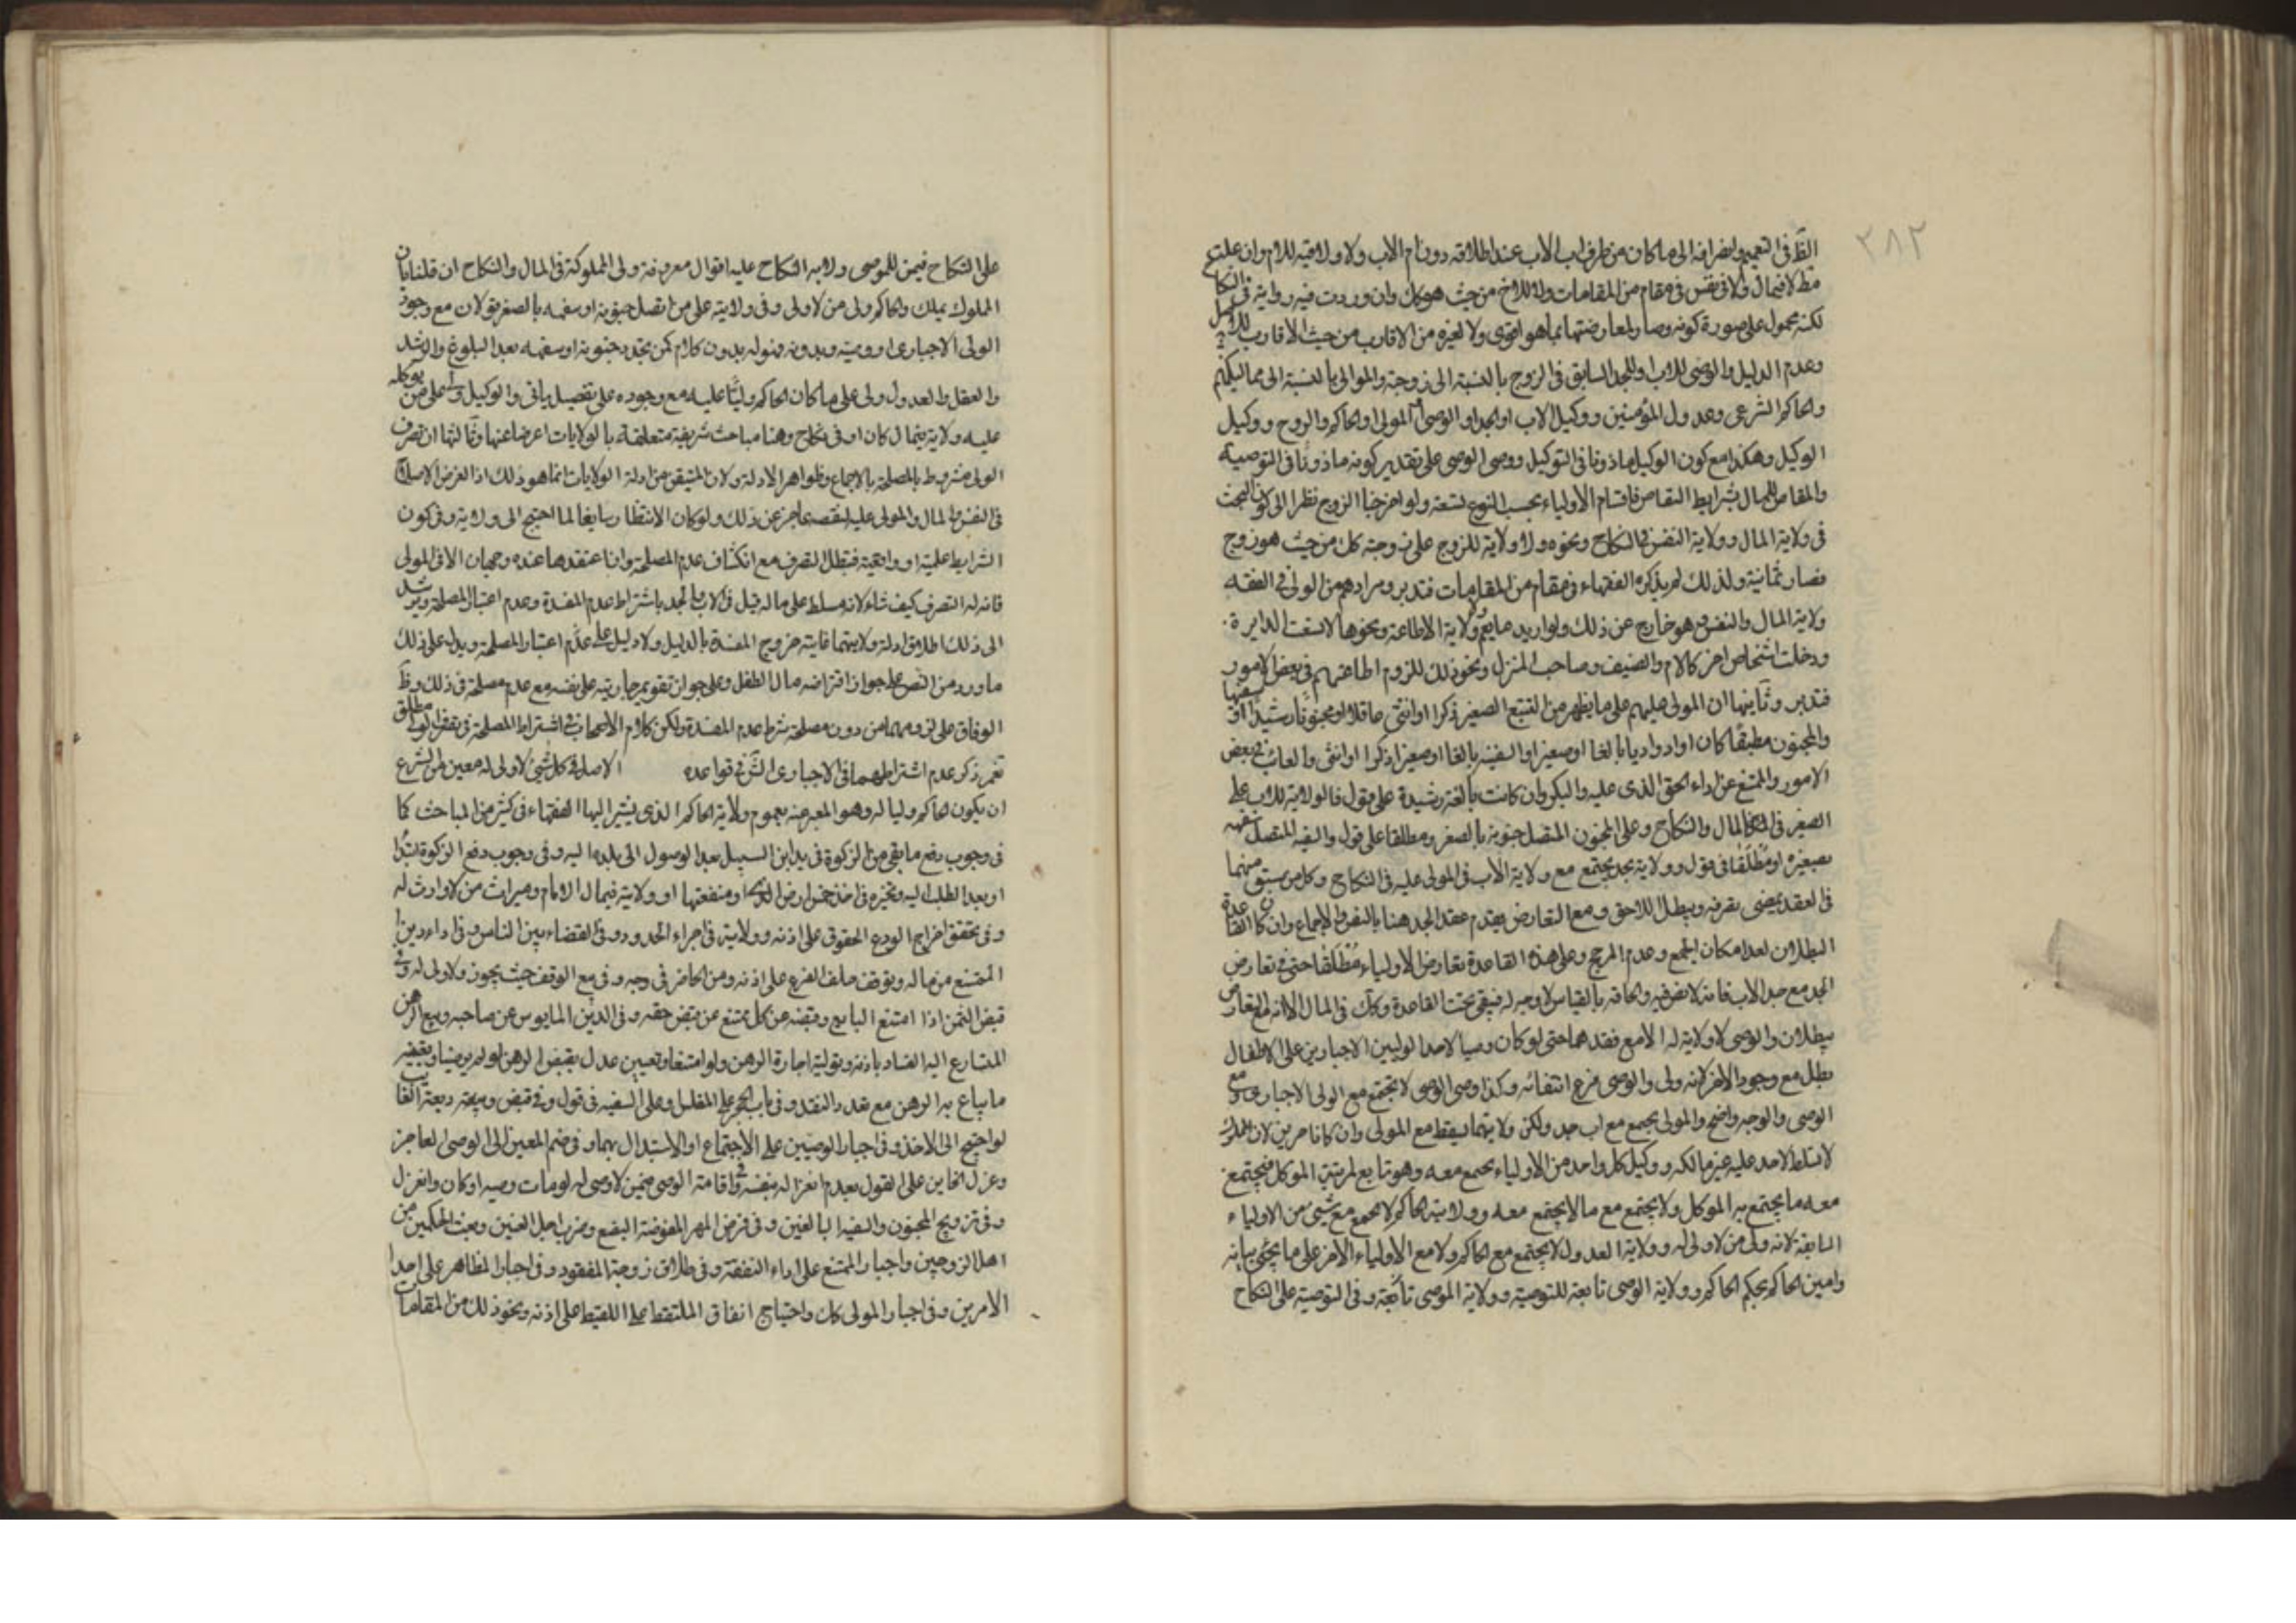 ٢٨٢
الظ في التعميم وانصرافه الى ما كان من طرف اب الاب عند اطلاقه دون ام الاب ولا ولاية للام وان علت
مط لا في مال ولا في نفس في مقام من المقامات ولا للاخ من حيث هو كك وان وردت فيه رواية في النكاح
لكنه محمول على صورة كونه وصيا لمعارضتها بما هو اقوى ولا لغيره من الاقارب من حيث الاقارب للاصل
وعدم الدليل والوصى للاب او للجد السابق في الزوج بالنسبة الى زوجته والموالى بالنسبة الى مماليكهم
والحاكم الشرعى وعدول المؤمنين ووكيل الاب او الجد او الوصى او المولى او الحاكم والزوج ووكيل
الوكيل وهكذا مع كون الوكيل ماذونا في التوكيل ووصى الوصى على تقدير كونه ماذونا في التوصية
والمقاص للمال بشرايط التقاص فاقسام الأولياء بحسب النوع تسعة ولو اخرجنا الزوج نظرا الى كون البحث
في ولاية المال وولاية النفس في النكاح ونحوه ولا ولاية للزوج على زوجته كك من حيث هو زوج
فصار ثمانية ولذلك لم يذكره الفقهاء في مقام من المقامات فتدبر ومرادهم من الولي في الفقه
ولاية المال والنفس وهو خارج عن ذلك ولو اريد ما يعم ولاية الاطاعة ونحوها لاتسعت الدايرة
ودخلت اشخاص اخر كالام والضيف وصاحب المنزل ونحو ذلك للزوم اطاعتهم في بعض الامور
فتدبر وثانيها ان المولى عليهم على ما يظهر من التتبع الصغير ذكرا او انثى عاقلا او مجنونا رشيدا او سفيها
والمجنون مطبقا كان او ادواريا بالغا او صغيرا والسفيه بالغا او صغيرا ذكرا او انثى والغائب في بعض
الامور والممتنع عن اداء الحق الذى عليه والبكر وان كانت بالغة رشيدة على قول فالولاية للاب على
الصغير في المال والنكاح وعلى المجنون المتصل جنونه بالصغر ومطلقا على قول والسفيه المتصل سفهه
بصغره او مطلقا في قول وولاية بجد يجتمع مع ولاية الأب في المولى عليه في النكاح وكل من سبق منهما
في العقد يمضى تصرفه ويبطل اللاحق ومع التعارض يقدم عقد الجد هنا بالنص والاجماع وان كان القاعدة
البطلان لعدم امكان الجمع وعدم المرجح وعلى هذه القاعدة تعارض الاولياء مطلقا حتى في تعارض
الجد مع جد الاب فانه لا نص فيه والحاقه بالقياس لا وجه له فيبقى تحت القاعدة وكك في المال الا انه مع التعارض
يبطلان والوصى لا ولاية له الا مع فقدهما حتى لو كان وصيا لاحد الوليين الاجباريين على الاطفال
بطل مع وجود الاخر لانه ولى والوصى فرع انتفائه وكذا وصى الوصى لا يجتمع مع الولى الاجبارى ومع
الوصى والوجه واضح والمولى يجمع مع اب وجد ولكن ولايتهما يسقط مع المولى وان كانا حرين لان المملوك
لا تسلط لاحد عليه غير مالكه ووكيل كل واحد من الاولياء يجتمع معه وهو تابع لمرتبة الموكل فيجتمع
معه ما يجتمع به الموكل ولا يجتمع مع ما لا يجتمع معه وولاية الحاكم لا تجمع مع شئ من الاولياء
السابقة لانه ولى من لا ولى له وولاية العدول لا يجتمع مع الحاكم ولا مع الأولياء الاخر على ما يجئى بيانه
وامين الحاكم بحكم الحاكم وولاية الوصى تابعة للتوصية وولاية الموصى تابعة وفي التوصية على النكاح
على النكاح فيمن للموصى ولاية النكاح عليه اقوال معروفة ولى المملوكة في المال والنكاح ان قلنا بان
المملوك يملك والحاكم ولى من لا ولى وفي ولايته على من اتصل جنونه او سفهه بالصغر قولان مع وجود
الولى الاجبارى او وصيه وبدونه فهو له بدون كلام كمن تجدد جنونه او سفهه بعد البلوغ والرشد
والعقل والعدول ولى على ما كان الحاكم وليا عليه مع وجوده على تفصيل ياتى والوكيل ولى على من يوكله
عليه ولاية في مال كان او في نكاح وهنا مباحث شريفة متعلقة بالولايات اعرضنا عنها وثالثها ان تصرف
الولى مشروط بالمصلحة بالاجماع وظواهر الادلة ولان المتيقن من ادلة الولايات انما هو ذلك اذ الغرض الاصلاح
في النفس والمال والمولى عليه لنقصه عاجز عن ذلك ولو كان الانتظار سايغا لما احتيج الى ولاية وفي كون
الشرايط علمية او واقعية فتبطل التصرف مع انكشاف عدم المصلحة وان اعتقدها عنده وجهان الا في المولى
فانه له التصرف كيف شاء لانه مسلط على ماله قيل في الاب والجد باشتراط عدم المفسدة وعدم اعتبار المصلحة ويرشد
الى ذلك اطلاق ادلة ولايتهما غايته خروج المفسدة بالدليل ولا دليل على عدم اعتبار المصلحة ويدل على ذلك
ما ورد من النص على جواز اقتراضه مال الطفل وعلى جواز تقويم جاريته على نفسه مع عدم مصلحة في ذلك وظ
الوفاق على لزومهما من دون مصلحة شرط عدم المفسدة ولكن كلام الاصحاب في اشتراط المصلحة في تصرف الولى مطلق
نعم ذكر عدم اشتراطهما في الاجبارى الشن في قواعده الاصل في كل شئ لا ولى له معين من الشرع
ان يكون الحاكم وليا له وهو المعبر عنه بعموم ولاية الحاكم الذى يشير اليها الفقهاء في كثير من المباحث كما
في وجوب دفع ما بقى من الزكوة في يد ابن السبيل بعد الوصول الى بلده اليه وفي وجوب دفع الزكوة ابتداء
او بعد الطلب اليه وتخيره في اخذ خمس ارض الذمى او منفعتها او ولايته في مال الامام وميراث من لا وارث له
وفى تحقق اخراج الودعى الحقوق على اذنه وولايته في اجراء الحدود وفي القضاء بين الناس وفي اداء دين
الممتنع من ماله وتوقف حلف الغريم على اذنه ومن الحاضر في وجه وفي بيع الوقف حيث يجوز ولا ولى له وفي
قبض الثمن اذا امتنع البايع وقبضه عن كل ممتنع عن قبض حقه وفي الدين المايوس عن صاحبه وبيع الرهن
المتسارع اليه الفساد باذنه وتولية اجارة الرهن ولو امتنعا وتعيين عدل يقبض الرهن لو لم يرضيا وتعيين
ما يباع به الرهن مع تعدد النقد وفي باب الحجر على المفلس وعلى السفيه في قول وفي قبض وديعة الغائب
لو احتيج الى الاخذ وفي اجبار الوصيين على الاجتماع او الاستبدال بهما وفي ضم المعين الى الوصى العاجز
وعزل الخاين على القول بعدم انعزاله بنفسه وفي اقامة الوصى فيمن لا وصى له او مات وصيه او كان وانعزل
وفى تزويج المجنون والسفيه البالغين وفي فرض المهر المفوضة البضع وضرب اجل العنين وبعث الحكمين من
اهل الزوجين واجبار الممتنع على اداء النفقة وفي طلاق زوجة المفقود وفي اجبار المظاهر على احد
الامرين وفي اجبار المولى كك واحتياج انفاق الملتقط على اللقيط على اذنه ونحو ذلك من المقامات